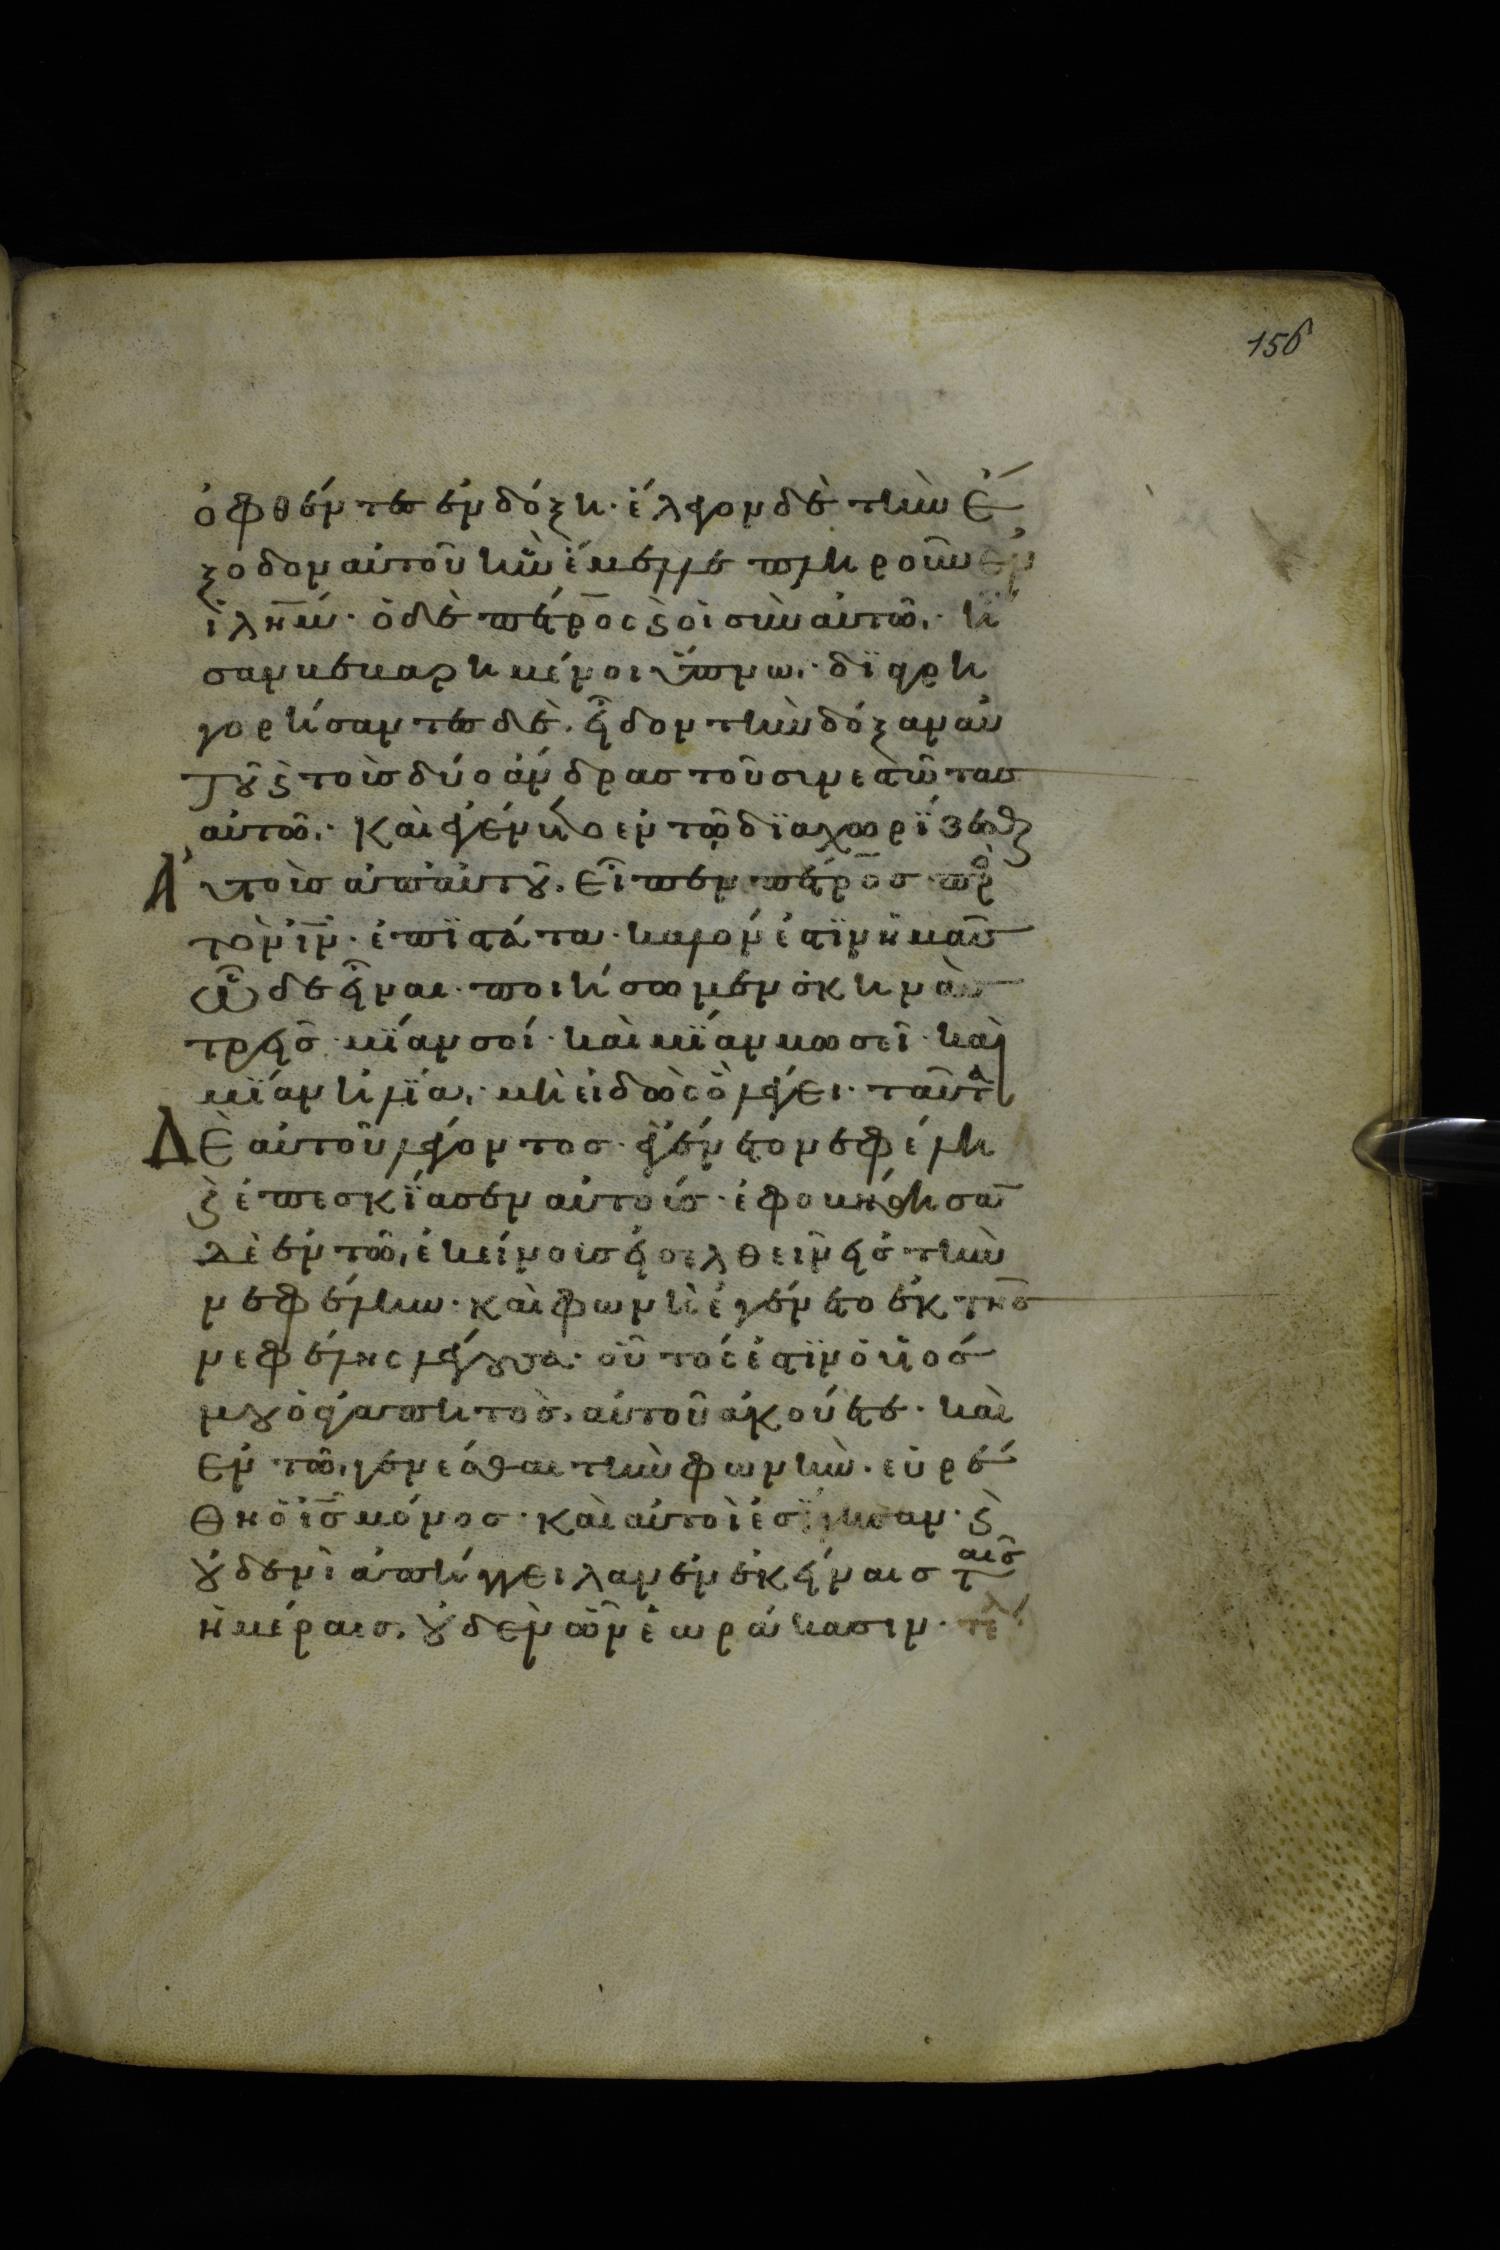 156
ὀφθέντες ἐν δόξη· ἔλεγον δὲ τὴν ἔ
ξοδον αὐτοῦ ἣν ἔμελλε πληροῦν ἐν
ἰλημ· ὁ δὲ πέτρος ϗ οἱ σὺν αὐτῶ· ἦ
σαν βεβαρημένοι ὕπνω· δϊαγρη
γορήσαντες δὲ, εἶδον τὴν δόξαν αὐ
τοῦ ϗ τοὺς δύο ἄνδρας τοὺς συνεστῶτας
αὐτῶ· καὶ ἐγένετο ἐν τῶ δϊαχωρΐζεσθαι
αὐτοὺς ἀπ' αὐτοῦ. εἶπεν πέτρος πρὸ
τὸν ιν· ἐπϊστάτα· καλόν ἐστϊν ἡμᾶς
ὧδε εἶναι· ποιήσωμεν σκηνὰς
τρεῖς· μΐαν σοί· καὶ μΐαν μωσεῖ· καὶ
μΐαν ἠλΐα· μὴ εἰδὼς ὃ λέγει· ταῦτα
Δὲ αὐτοῦ λέγοντος· ἐγένετο νεφέλη
ϗ ἐπεσκΐασεν αὐτούς· ἐφοβήθησαν
δὲ ἐν τῶ ἐκείνους εἰσελθεῖν εἰς τὴν
νεφέλην· καὶ φωνὴ ἐγένετο ἐκ τῆς
νεφέλης λέγουσα· οὗτός ἐστϊν ὁ υἱός
μου ὁ ἀγαπητὸς, αὐτοῦ ἀκούετε· καὶ
ἐν τῶ γενέσθαι τὴν φωνὴν· εὑρέ
θη ὁ ις μόνος· καὶ αὐτοὶ ἐσΐγησαν· ϗ
οὐδενὶ ἀπήγγειλαν ἐν ἐκείναις ταῖς
ἡμέραις, οὐδὲν ὧν ἑωράκασιν· τε